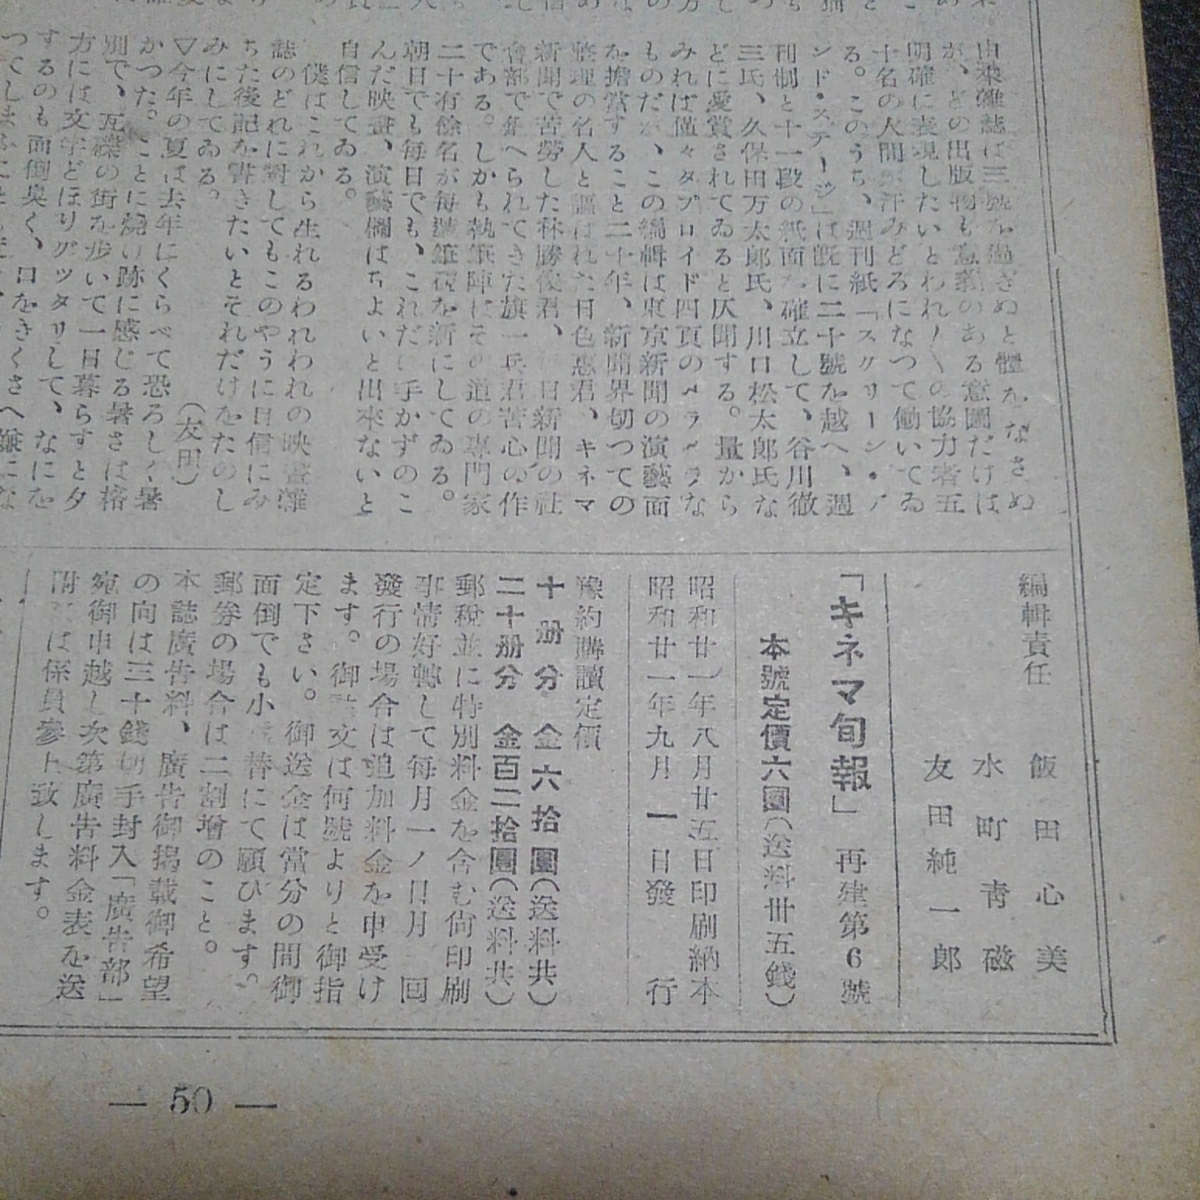 由來雜誌は三號を過ぎぬと體をなさぬ
が、どの出版物も意義のある意圖だけは
明確に表現したいとわれ〱の協力者五
十名の人間が汗みどろになつて働いてゐ
る。このうち、週刊紙「スクリーン・ア
ンド・ステージ」は既に二十號を越へ、週
刊制と十一段の紙面を確立して、谷川徹
三氏、久保田万太郎氏、川口松太郎氏な
どに愛賞されてゐると仄聞する。量から
みれば僅々タブロイド四頁のペラペラな
ものだが、この編輯は東京新聞の演藝面
を擔當すること二十年、新聞界切つての
整理の名人と謳はれた日色惠君、キネマ
新聞で苦勞した林勝俊君、日新聞の社
會部で鍛へられてきた旗一兵君苦心の作
である。しかも執筆陣はその道の專門家
二十有餘名が每號筆硯を新にしてゐる。
朝日でも每日でも、これだけ手かずのこ
んだ映畫、演藝欄はちよいと出來ないと
自信してゐる。
僕はこれから生れるわれわれの映畫雜
誌のどれに對してもこのやうに自信にみ
ちた後記を書きたいとそれだけをたのし
みにしてゐる。(友田)
▽今年の夏は去年にくらべて恐ろしく暑
かつた。ことに燒け跡に感じる暑さは格
別で、瓦礫の街を歩いて一日暮らすと夕
方には文字どほりグッタリして、なにを
するのも面倒臭く、口をきくさへ嫌にな
編輯責任
飯田心美
水町青磁
友田純一郎
「キネマ旬報」再建第6號
本號定價六圓(送料卅五錢)
昭和廿一年八月廿五日印刷納本
昭和廿一年九月一日發行
豫約購讀定價
十册分 金六拾圓(送料共)
二十册分 金百二拾圓(送料共)
郵稅並に特別料金を含む尙印刷
事情好轉して每月一ノ日月 回
發行の場合は追加料金を申受け
ます。御註文は何號よりと御指
定下さい。御送金は當分の間御
面倒でも小爲替にて願ひます。
郵券の場合は二割增のこと。
本誌廣告料、廣告御揭載御希望
の向は三十錢切手封入「廣告部」
宛御申越し次第廣告料金表を送
附又は係員參上致します。
— 50 —